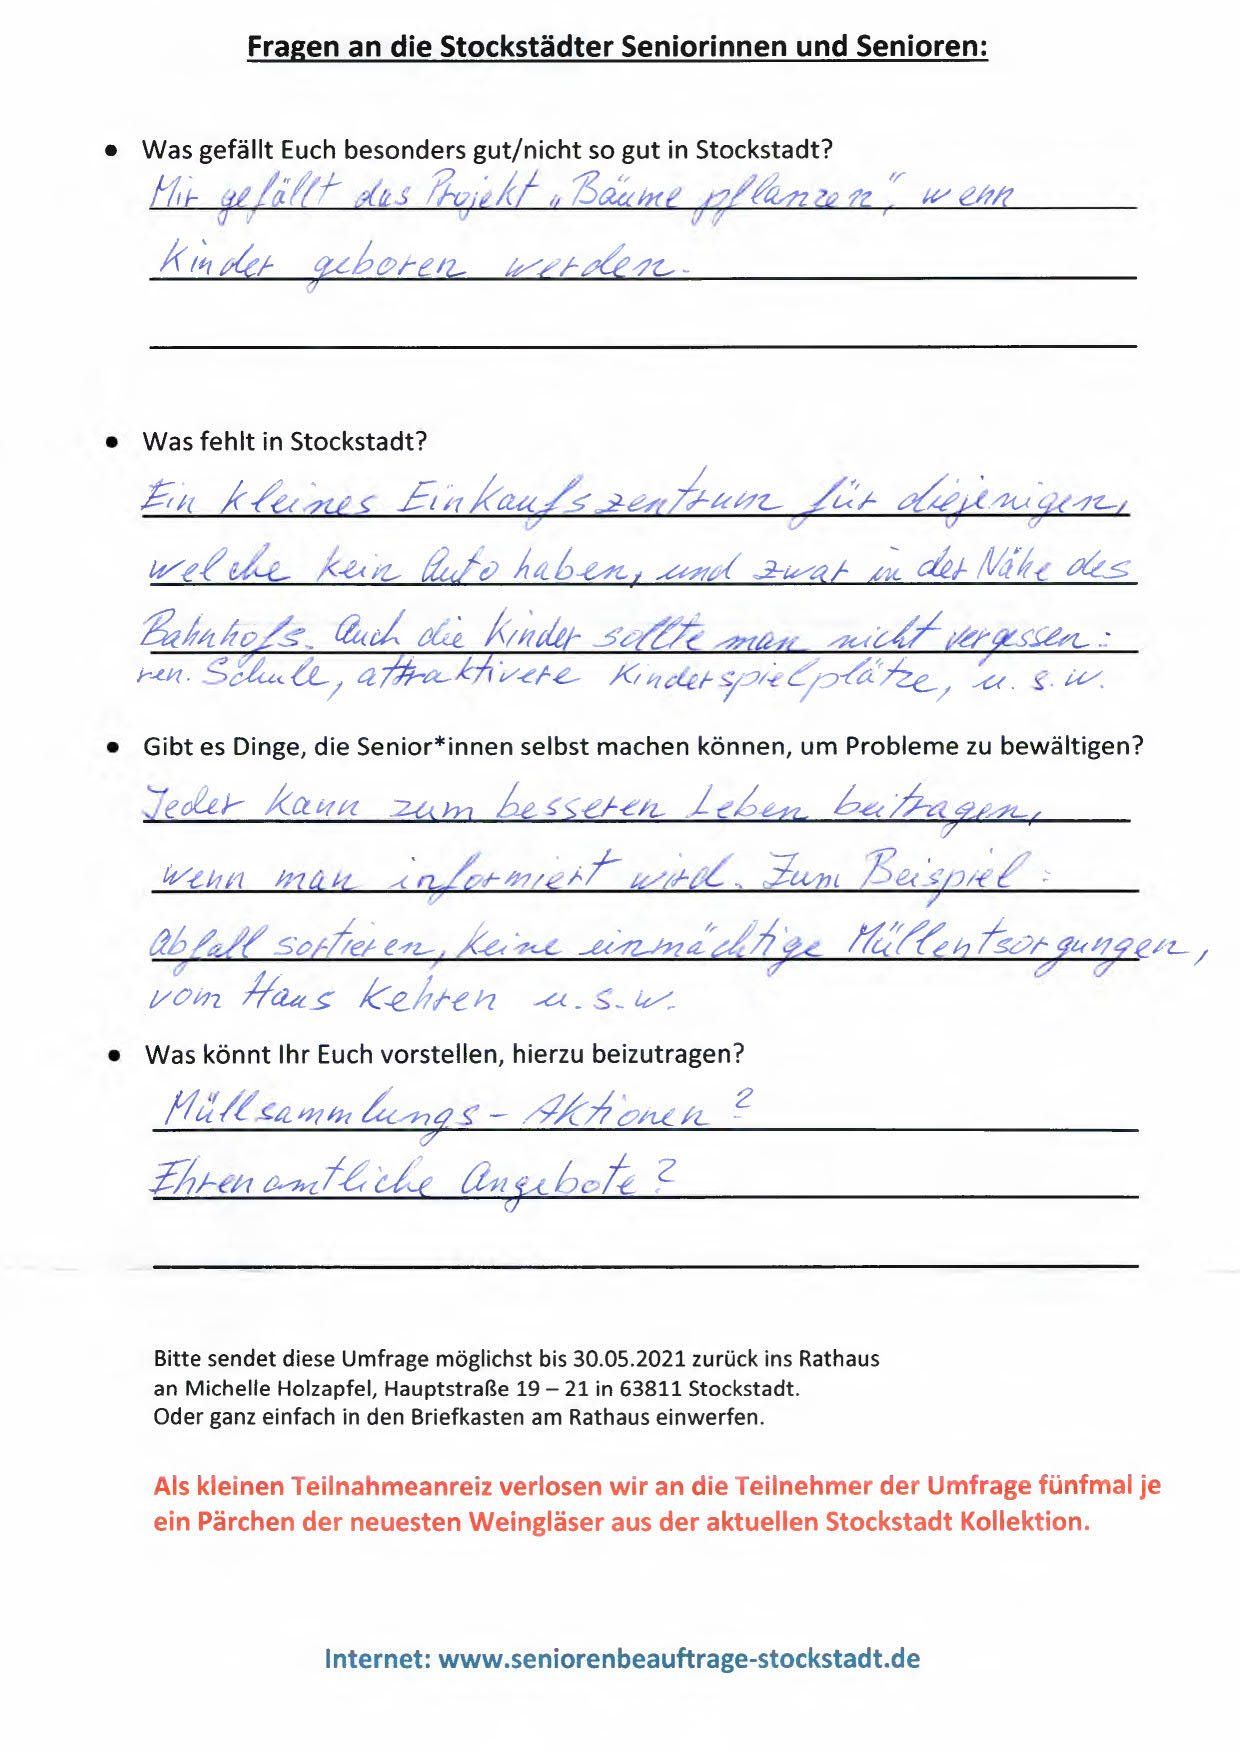 Fragen an die Stockstädter Seniorinnen und Senioren:
• Was gefällt Euch besonders gut/nicht so gut in Stockstadt?
Mir gefällt das Projekt „Bäume pflanzen“, wenn
Kinder geboren werden.
• Was fehlt in Stockstadt?
Ein kleines Einkaufszentrum für diejenigen,
welche kein Auto haben, und zwar in der Nähe des
Bahnhofs. Auch die Kinder sollte man nicht vergessen:
ren. Schule, attraktivere Kinderspielplätze, u. s. w.
• Gibt es Dinge, die Senior*innen selbst machen können, um Probleme zu bewältigen?
Jeder kann zum besseren Leben beitragen,
wenn man informiert wird. Zum Beispiel:
Abfall sortieren, keine einmächtige Müllentsorgungen,
vom Haus kehren u. s. w.
• Was könnt Ihr Euch vorstellen, hierzu beizutragen?
Müllsammlungs - Aktionen?
Ehrenamtliche Angebote?
Bitte sendet diese Umfrage möglichst bis 30.05.2021 zurück ins Rathaus
an Michelle Holzapfel, Hauptstraße 19 – 21 in 63811 Stockstadt.
Oder ganz einfach in den Briefkasten am Rathaus einwerfen.
Als kleinen Teilnahmeanreiz verlosen wir an die Teilnehmer der Umfrage fünfmal je
ein Pärchen der neuesten Weingläser aus der aktuellen Stockstadt Kollektion.
Internet: www.seniorenbeauftrage-stockstadt.de